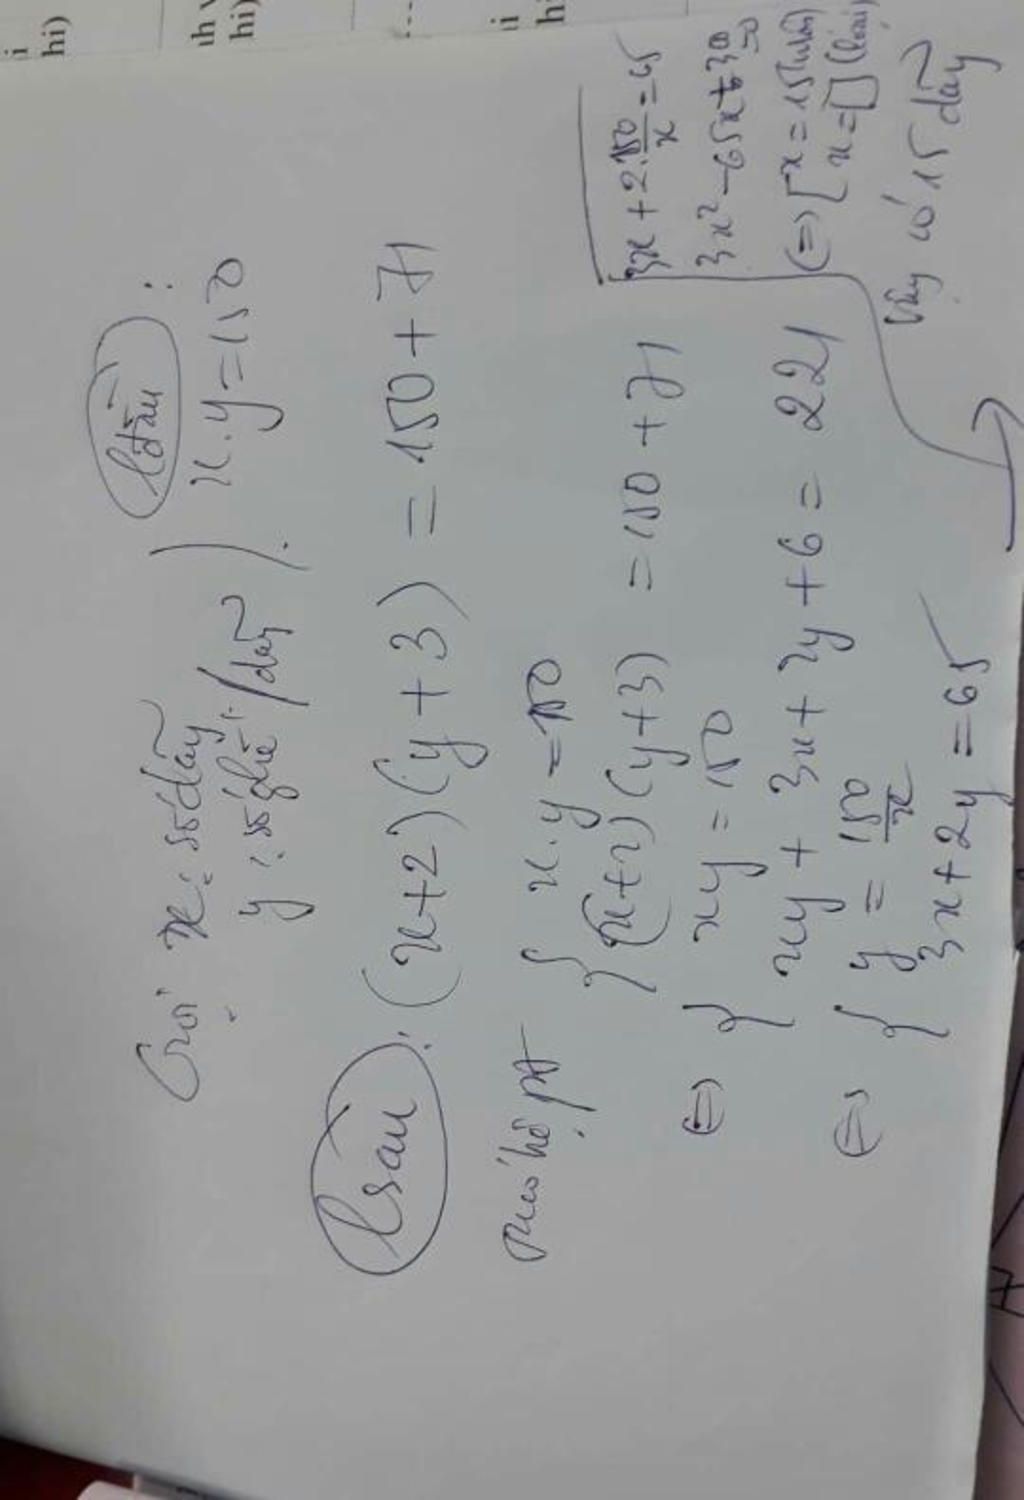 Gọi x: số dãy
y: số ghế / dãy
lđầu :
x.y = 150
lsau : (x+2)(y+3) = 150 + 71
hệ pt { x.y = 150
(x+2)(y+3) = 150 + 71
⇔ { xy = 150
xy + 3x + 2y + 6 = 221
⇔ { y = 150/x
3x + 2y = 65
3x + 2.150/x = 65
3x² - 65x + 300 = 0
⇔ [ x = 15 (nhân)
x = [] (loại)
Vậy có 15 dãy
i
hi)
hi)
i